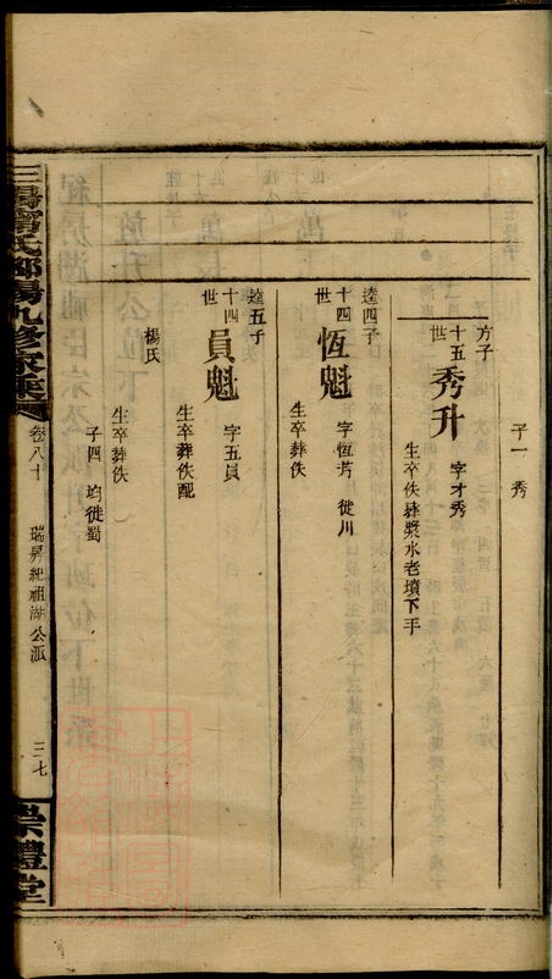 子一 秀
方子
十五世 秀升 字才秀
生卒佚葬漿水老墳下手
逵四子
十四世 恆魁 字恆芳 徙川
生卒葬佚
逵五子
十四世 員魁 字五員
生卒葬佚配
楊氏
生卒葬佚
子四 均徙蜀
卷八十 瑞房紀祖湖公派 三七
崇禮堂